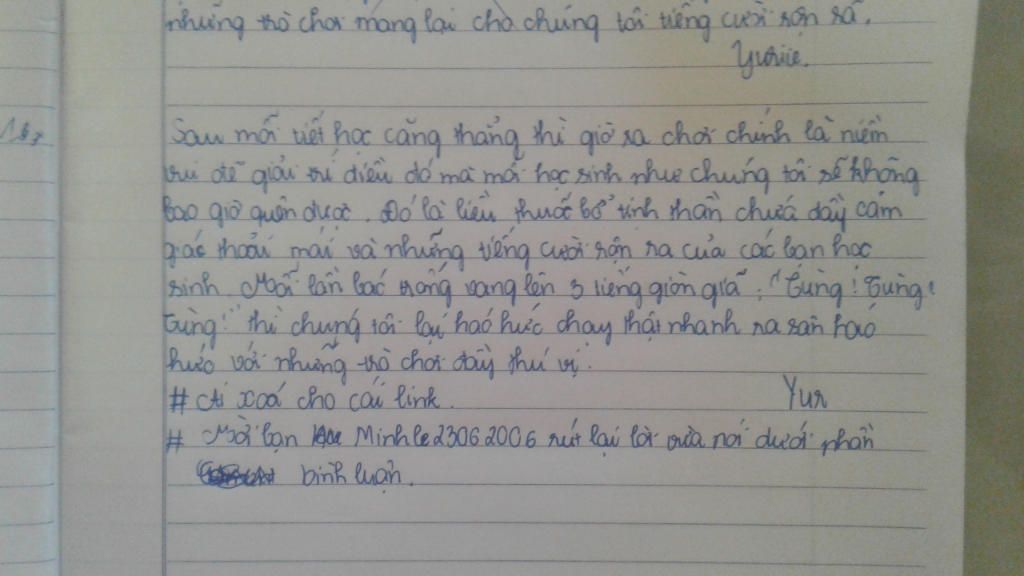 những trò chơi mang lại cho chúng tôi tiếng cười rộn rã.
Yuriie.
Sau mỗi tiết học căng thẳng thì giờ ra chơi chính là niềm
vui để giải trí điều đó mà mỗi học sinh như chúng tôi sẽ không
bao giờ quên được. Đó là liều thuốc bổ tinh thần chứa đầy cảm
giác thoải mái và những tiếng cười rộn ra của các bạn học
sinh. Mỗi lần bác trống vang lên 3 tiếng giòn giã: "Tùng! Tùng!
Tùng!" thì chúng tôi lại háo hức chạy thật nhanh ra sân háo
hức với những trò chơi đầy thú vị.
# Ai xoá cho cái link.
Yur
# Mời bạn Minhle23062006 rút lại lời vừa nói dưới phần
bình luận.